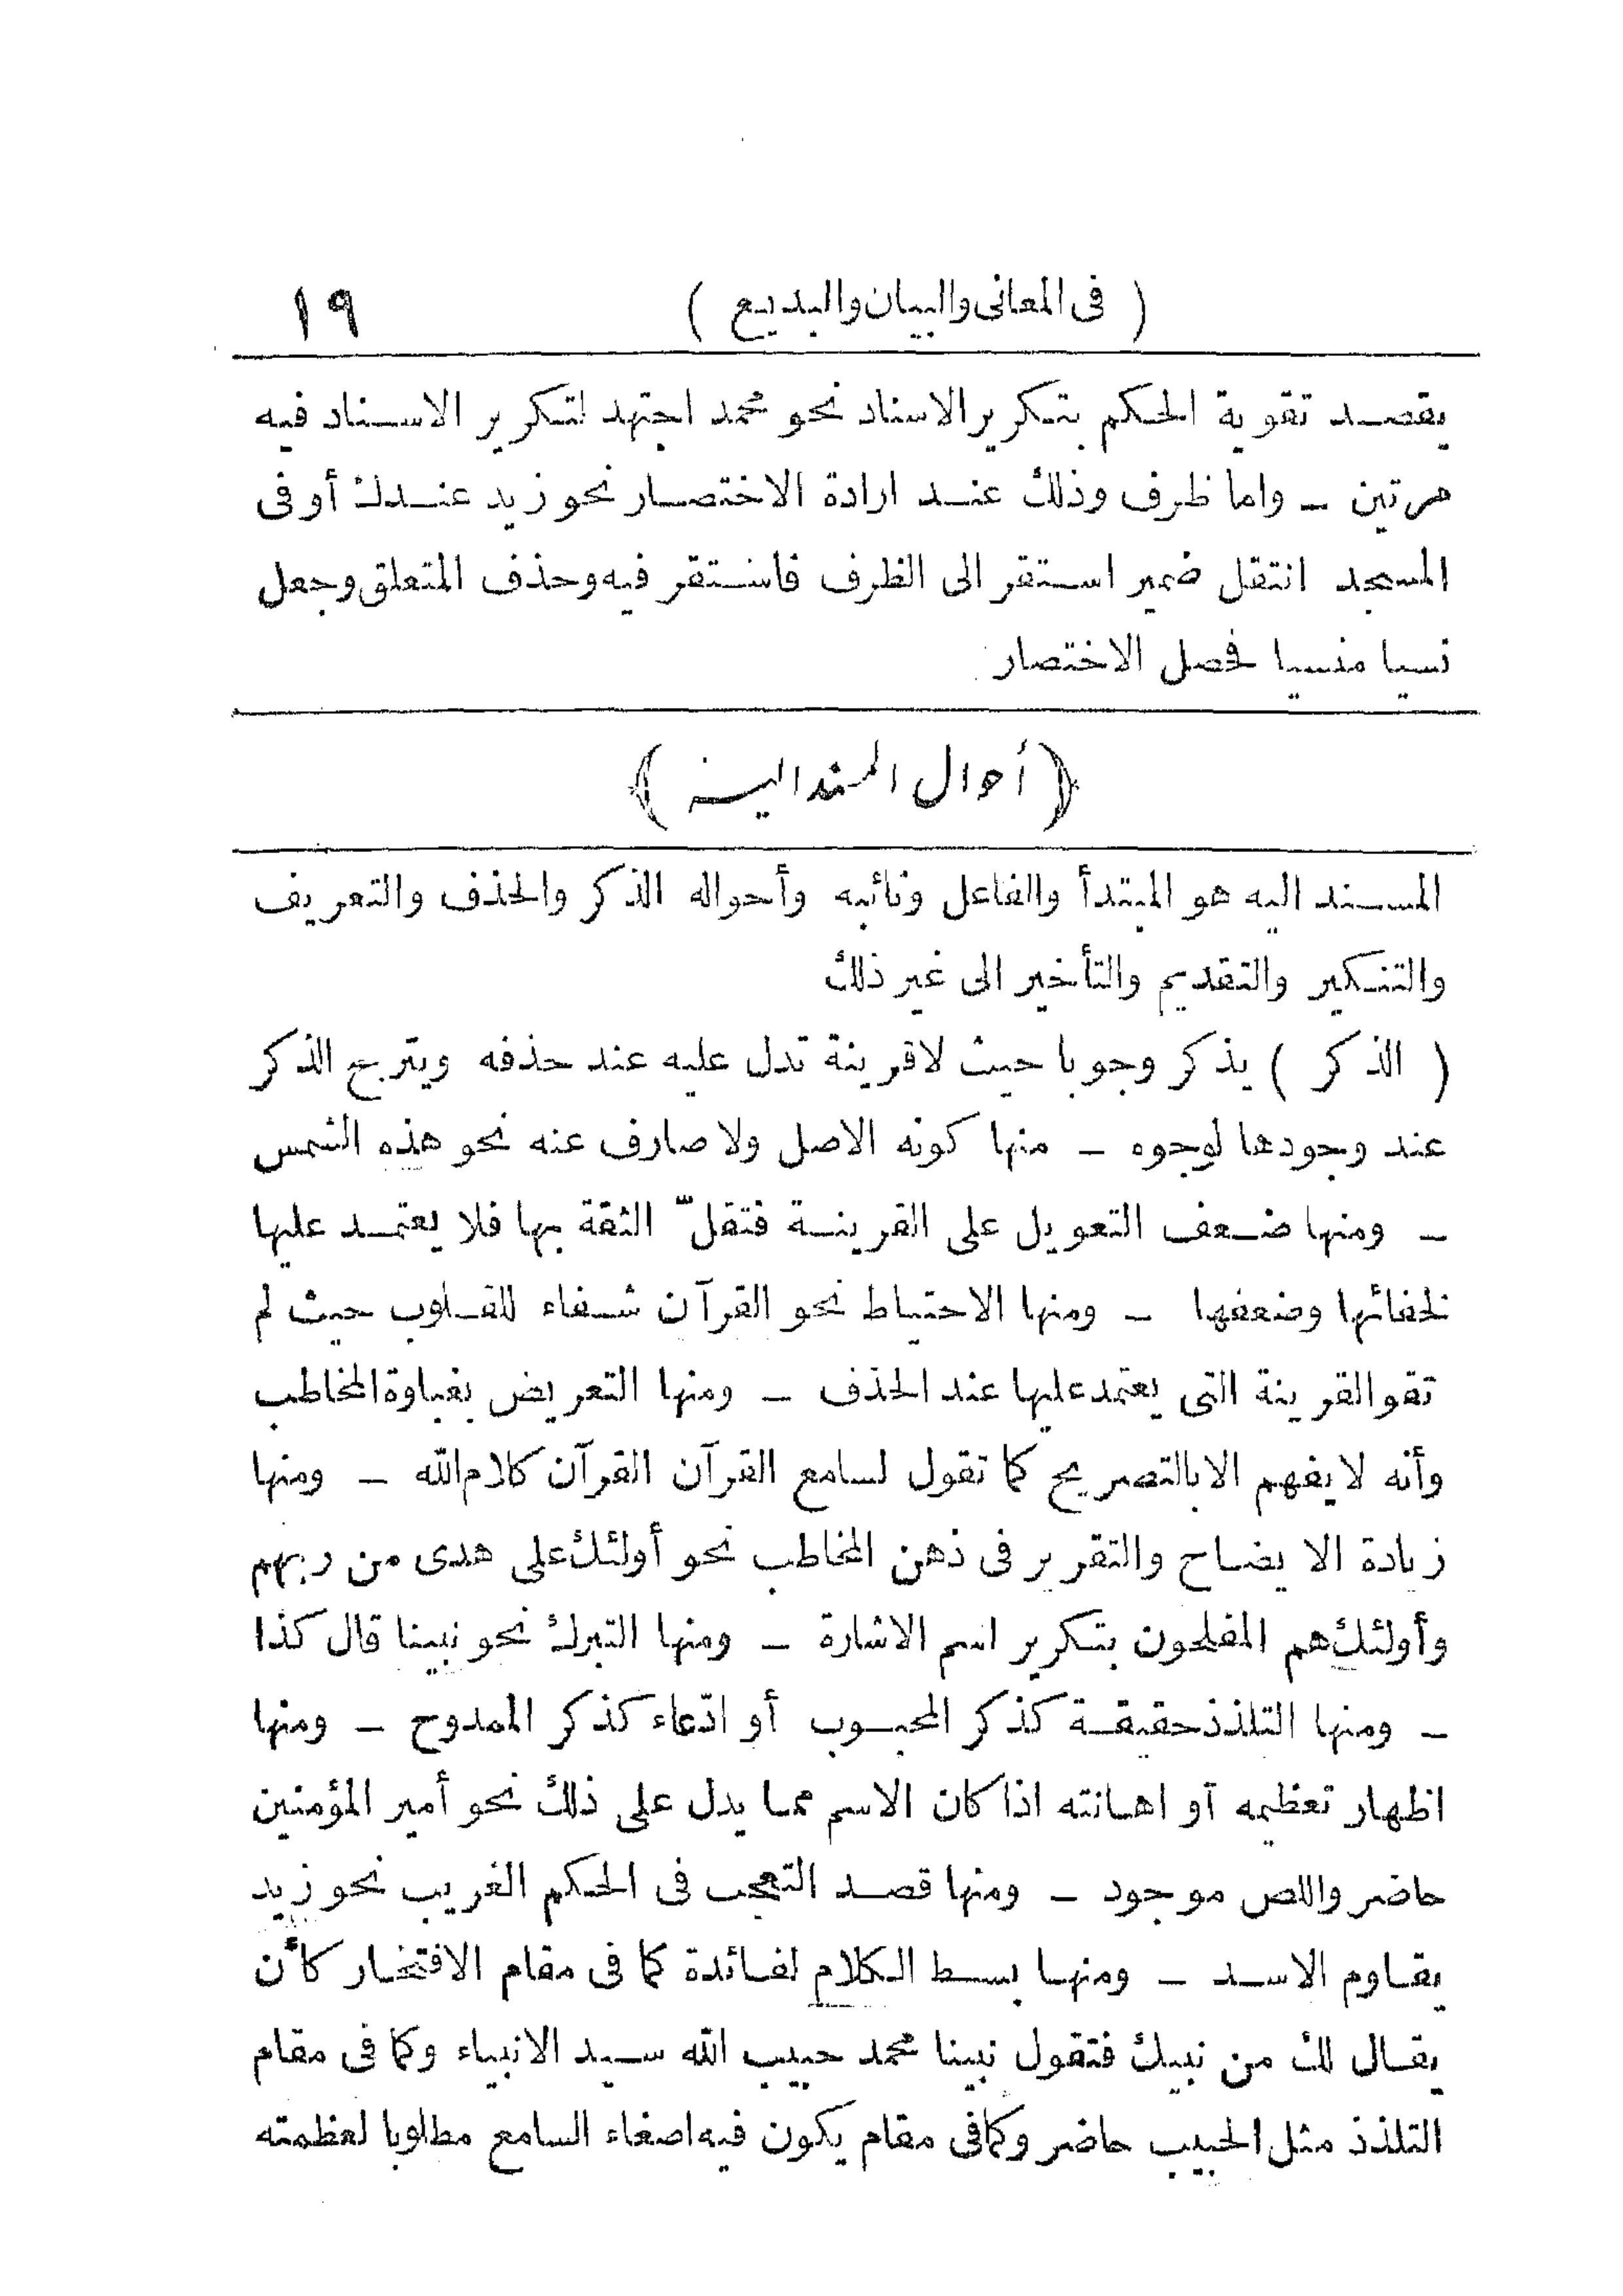 ( فى المعانى والبيان والبديع ) ١٩
يقصد تقوية الحكم بتكرير الاسناد نحو محمد اجتهد لتكرير الاسناد فيه
مرتين ــ واما ظرف وذلك عند ارادة الاختصار نحو زيد عندك أو فى
المسجد انتقل ضمير استقر الى الظرف فاستقر فيه وحذف المتعلق وجعل
نسيا منسيا فحصل الاختصار
﴿ أحوال المسند اليه ﴾
المسند اليه هو المبتدأ والفاعل ونائبه وأحواله الذكر والحذف والتعريف
والتنكير والتقديم والتأخير الى غير ذلك
( الذكر ) يذكر وجوبا حيث لا قرينة تدل عليه عند حذفه ويترجح الذكر
عند وجودها لوجوه ــ منها كونه الاصل ولا صارف عنه نحو هذه الشمس
ــ ومنها ضعف التعويل على القرينة فتقلّ الثقة بها فلا يعتمد عليها
لخفائها وضعفها ــ ومنها الاحتياط نحو القرآن شفاء للقلوب حيث لم
تقو القرينة التى يعتمد عليها عند الحذف ــ ومنها التعريض بغباوة المخاطب
وأنه لا يفهم الا بالتصريح كما تقول لسامع القرآن القرآن كلام الله ــ ومنها
زيادة الايضاح والتقرير فى ذهن المخاطب نحو أولئك على هدى من ربهم
وأولئك هم المفلحون بتكرير اسم الاشارة ــ ومنها التبرك نحو نبينا قال كذا
ــ ومنها التلذذ حقيقة كذكر المحبوب أو ادّعاء كذكر الممدوح ــ ومنها
اظهار تعظيمه أو اهانته اذا كان الاسم مما يدل على ذلك نحو أمير المؤمنين
حاضر واللص موجود ــ ومنها قصد التعجب فى الحكم الغريب نحو زيد
يقاوم الاسد ــ ومنها بسط الكلام لفائدة كما فى مقام الافتخار كأن
يقال لك من نبيك فتقول نبينا محمد حبيب الله سيد الانبياء وكما فى مقام
التلذذ مثل الحبيب حاضر وكما فى مقام يكون فيه اصغاء السامع مطلوبا لعظمته